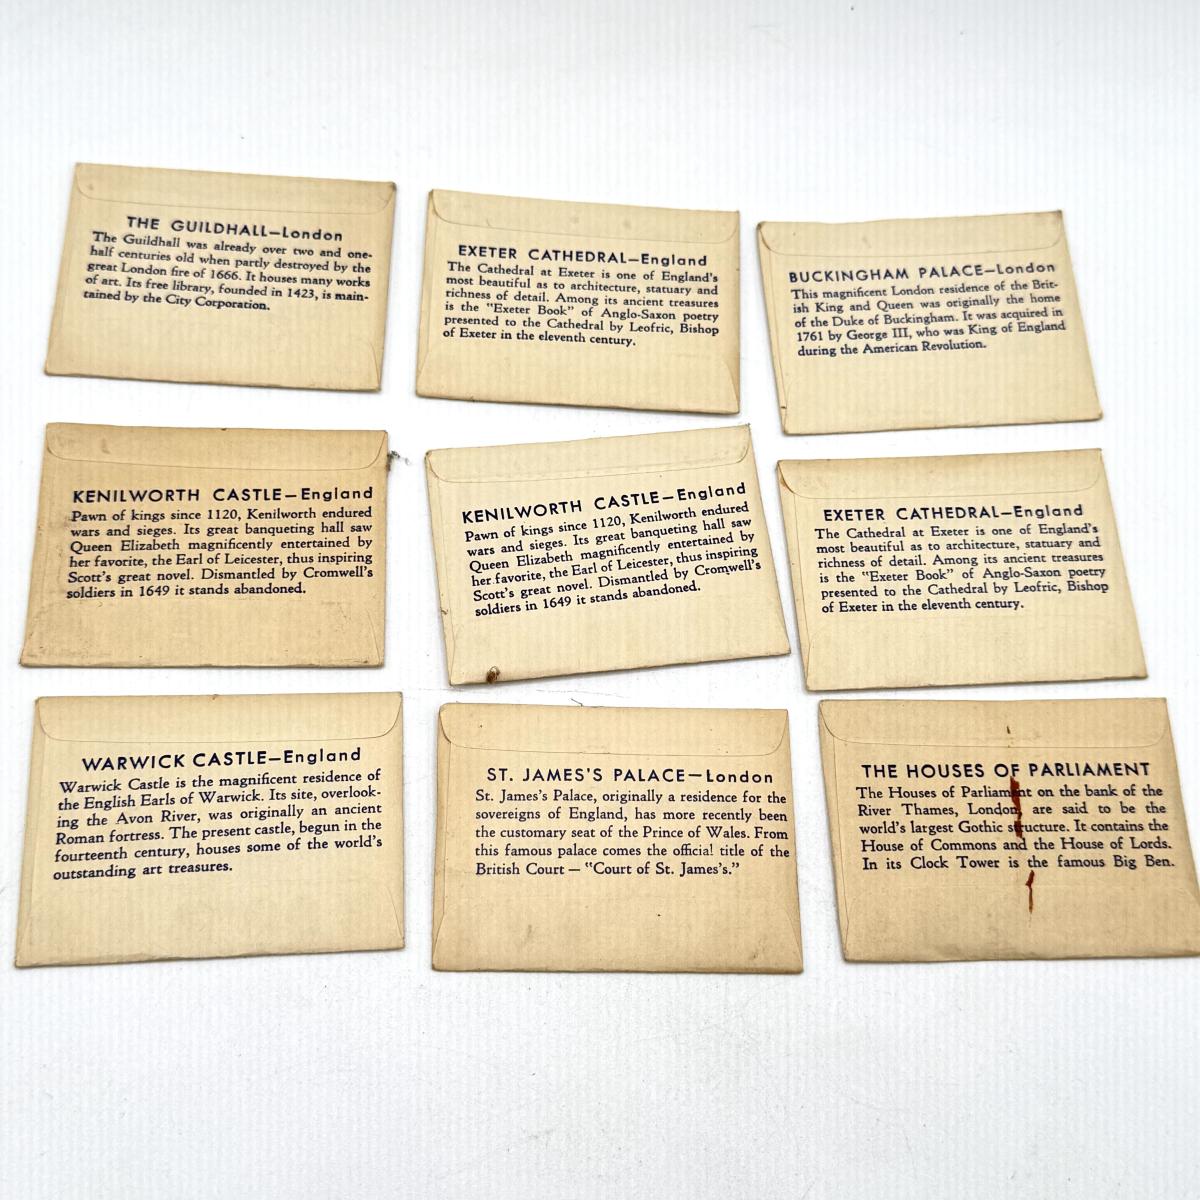 THE GUILDHALL—London
The Guildhall was already over two and one-
half centuries old when partly destroyed by the
great London fire of 1666. It houses many works
of art. Its free library, founded in 1423, is main-
tained by the City Corporation.
EXETER CATHEDRAL—England
The Cathedral at Exeter is one of England's
most beautiful as to architecture, statuary and
richness of detail. Among its ancient treasures
is the "Exeter Book" of Anglo-Saxon poetry
presented to the Cathedral by Leofric, Bishop
of Exeter in the eleventh century.
BUCKINGHAM PALACE—London
This magnificent London residence of the Brit-
ish King and Queen was originally the home
of the Duke of Buckingham. It was acquired in
1761 by George III, who was King of England
during the American Revolution.
KENILWORTH CASTLE—England
Pawn of kings since 1120, Kenilworth endured
wars and sieges. Its great banqueting hall saw
Queen Elizabeth magnificently entertained by
her favorite, the Earl of Leicester, thus inspiring
Scott's great novel. Dismantled by Cromwell's
soldiers in 1649 it stands abandoned.
KENILWORTH CASTLE—England
Pawn of kings since 1120, Kenilworth endured
wars and sieges. Its great banqueting hall saw
Queen Elizabeth magnificently entertained by
her favorite, the Earl of Leicester, thus inspiring
Scott's great novel. Dismantled by Cromwell's
soldiers in 1649 it stands abandoned.
EXETER CATHEDRAL—England
The Cathedral at Exeter is one of England's
most beautiful as to architecture, statuary and
richness of detail. Among its ancient treasures
is the "Exeter Book" of Anglo-Saxon poetry
presented to the Cathedral by Leofric, Bishop
of Exeter in the eleventh century.
WARWICK CASTLE—England
Warwick Castle is the magnificent residence of
the English Earls of Warwick. Its site, overlook-
ing the Avon River, was originally an ancient
Roman fortress. The present castle, begun in the
fourteenth century, houses some of the world's
outstanding art treasures.
ST. JAMES'S PALACE—London
St. James's Palace, originally a residence for the
sovereigns of England, has more recently been
the customary seat of the Prince of Wales. From
this famous palace comes the official title of the
British Court — "Court of St. James's."
THE HOUSES OF PARLIAMENT
The Houses of Parliament on the bank of the
River Thames, London, are said to be the
world's largest Gothic structure. It contains the
House of Commons and the House of Lords.
In its Clock Tower is the famous Big Ben.